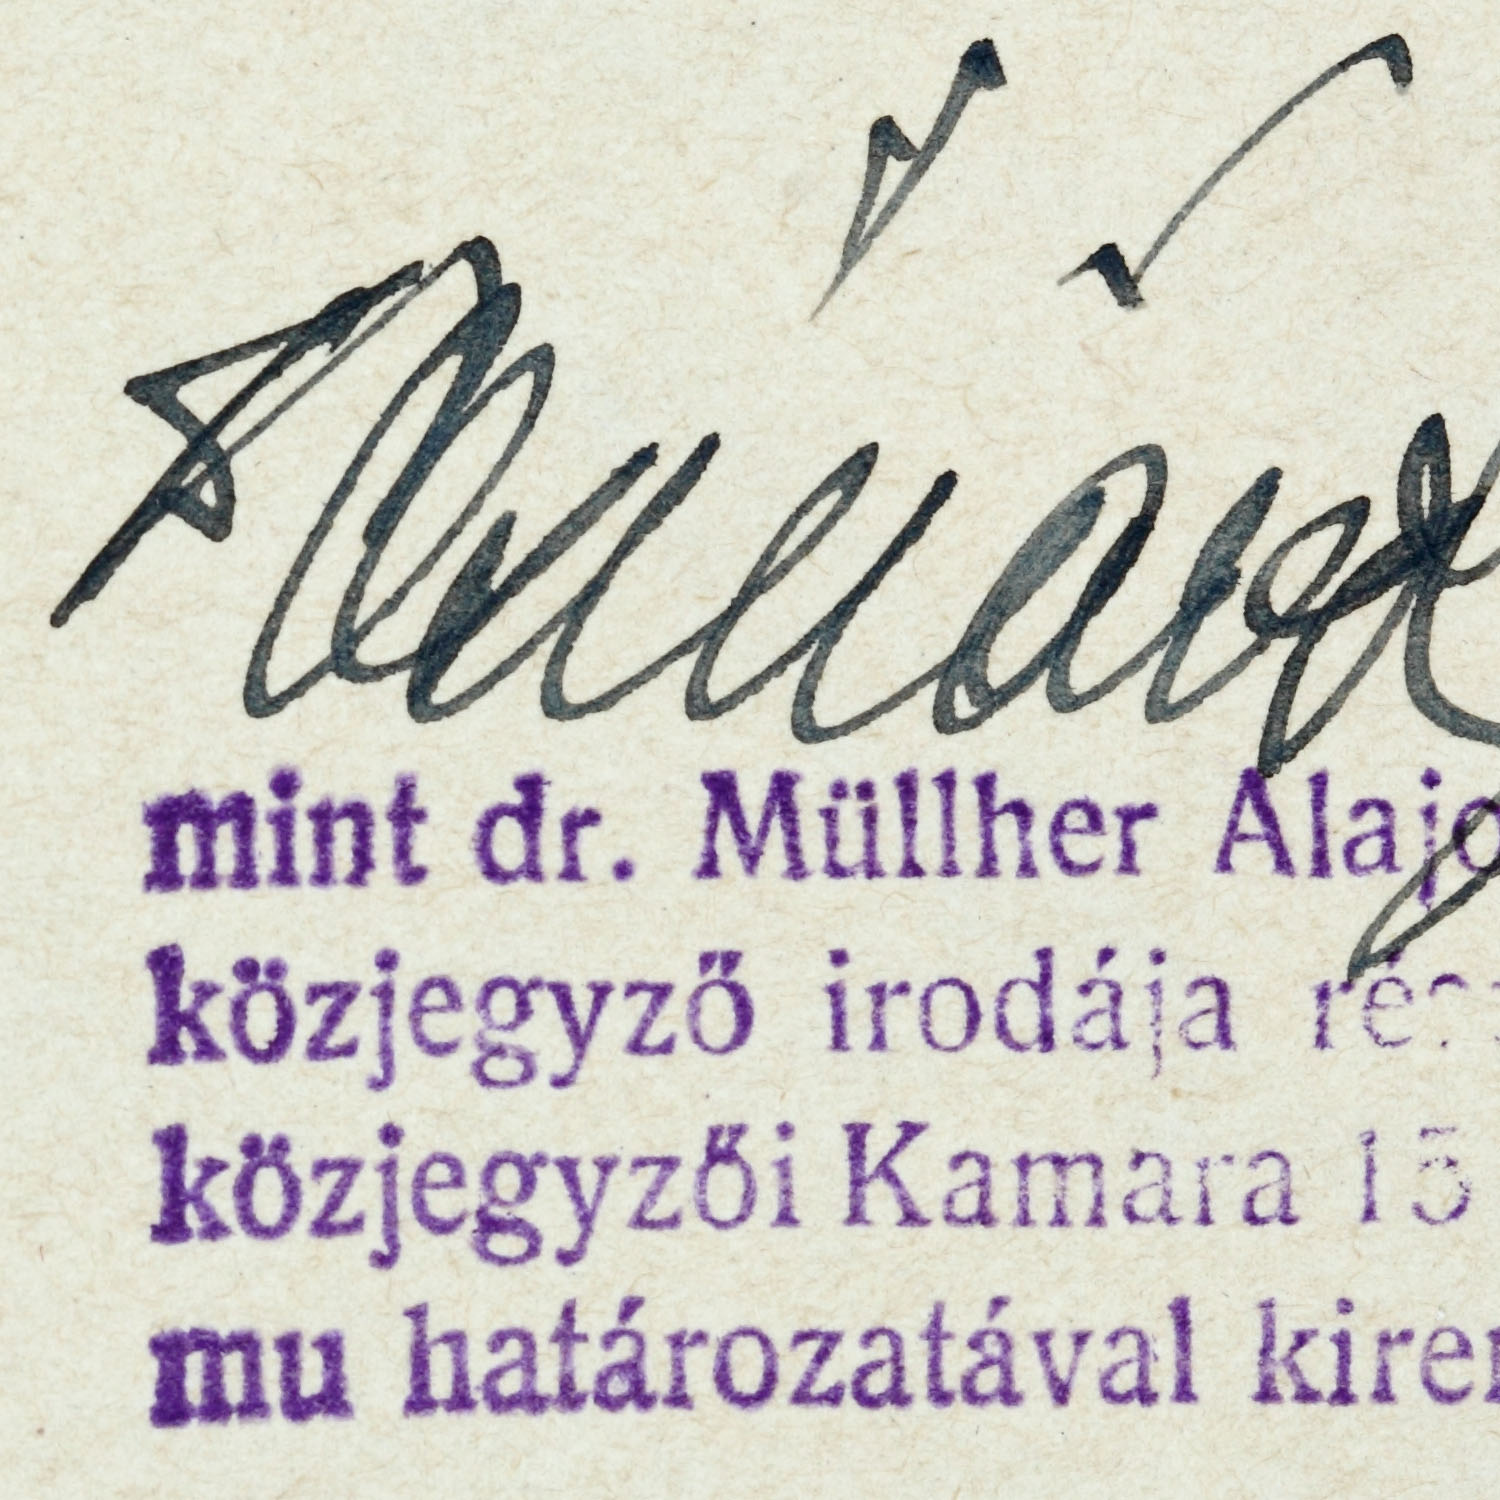 mint dr. Müllher Alajo
közjegyző irodája
közjegyzői Kamara 15
mu határozatával kiren